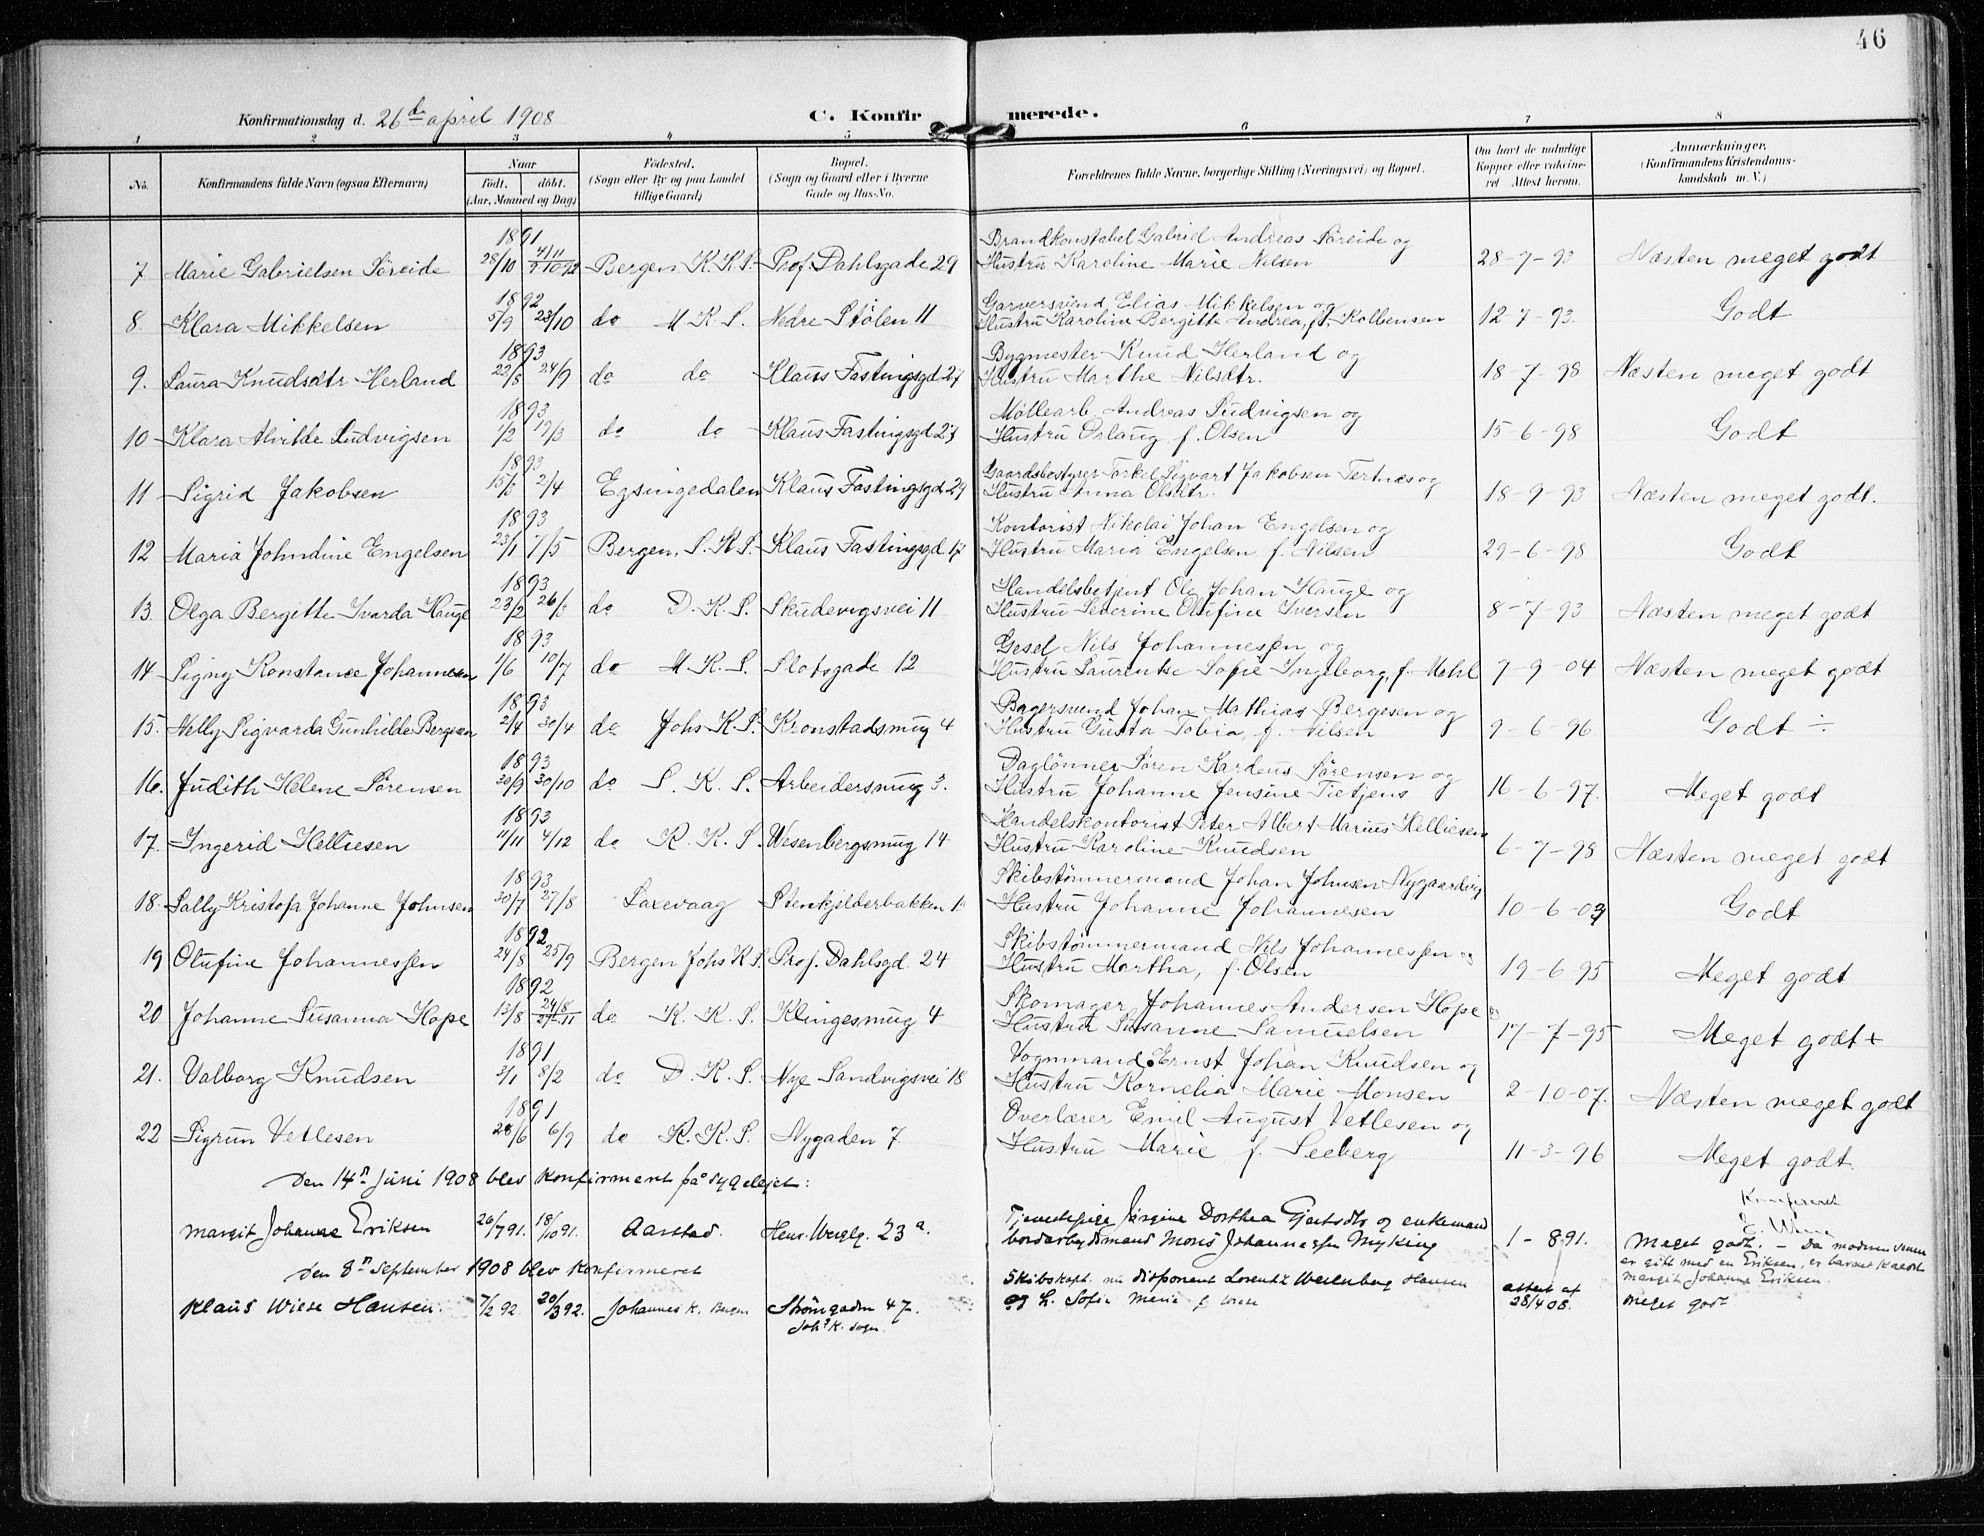 46
Konfirmationsdag d. 26de april 1908 C. Konfirmerede.
1 2 3 4 5 6 7 8
No. Konfirmandens fulde Navn (ogsaa Efternavn) Naar født. døbt. (Aar, Maaned og Dag) Fødested. (Sogn eller By og paa Landet tillige Gaard) Bopæl. (Sogn og Gaard eller i Byerne Gade og Hus-No. Forældrenes fulde Navne, borgerlige Stilling (Næringsvei) og Bopæl. Om havt de naturlige Kopper eller vakcineret Attest herom. Anmærkninger. (Konfirmandens Kristendomskundskab m. V.)
1891 Brandkonstabel Gabriel Andreas Søreide og
7 Marie Gabrielsen Søreide 28/10 4/11 Bergen K.K.S. Prof. Dahlsgade 29 Hustru Karoline Marie Nilsen 28-7-93 Næsten meget godt
1892 Garversvend Elias Mikkelsen og
8. Klara Mikkelsen 5/9 23/10 do M.K.S. Nedre Stølen 11 Hustru Karoline Bergitte Andrea, f. Kolbensen 12-7-93. Godt
1893 Bygmester Knud Herland og
9. Laura Knudsdtr Herland 22/8 24/9 do do Klaus Fastingsgd 27 Hustru Marthe Nilsdtr. 18-7-98 Næsten meget godt
1893 Møllearb. Andreas Ludvigsen og
10 Klara Alvilde Ludvigsen 1/2 19/3 do do Klaus Fastingsgd 27 Hustru Oslaug f. Olsen 15-6-98 Godt
1893 Gaardsbestyrer Torkel Sigvart Jakobsen Tertnæs og
11 Sigrid Jakobsen 15/2 2/4 Egsingedalen Klaus Fastingsgd 29 Hustru Anna Olsdtr. 18-9-93 Næsten meget godt.
1893 Kontorist Nikolai Johan Engelsen og
12 Maria Johndine Engelsen 23/1 7/5 Bergen, S.K.S. Klaus Fastingsgd 17 Hustru Maria Engelsen f. Nilsen 29-6-98 Godt
1893 Handelsbetjent Ole Johan Hauge og
13. Olga Bergitte Ivarda Hauge 23/2 26/3 do D.K.S. Skudevigsvei 11 Hustru Severine Olufine Iversen 8-7-93 Næsten meget godt
1893 Gesel Nils Johannessen og
14 Signy Konstance Johannesen 7/6 10/7 do M.K.S. Slotsgade 12 Hustru Laurentse Sofie Ingeborg, f. Mohl 7-9-04 Næsten meget godt
1893 Bagersvend Johan Mathias Bergesen og
15. Nelly Sigvarda Gunhilde Bergesen 2/4 30/4 do Johs K.S. Kronstadsmug 4 Hustru Gusta Tobia, f. Nilsen 9-6-96 Godt ÷
1893 Daglønner Søren Kardeus Sørensen og
16. Judith Helene Sørensen 30/9 30/10 do S.K.S. Arbeidersmug 3. Hustru Johanne Jensine Tietjens 16-6-97. Meget godt
1893 Handelskontorist Peter Albert Marius Helliesen
17. Ingerid Helliesen 11/11 4/12 do K.K.S. Wesenbergsmug 14 Hustru Karoline Knudsen 6-7-98 Næsten meget godt
1893 Skibstømmermand Johan Johnsen Nygaardsvig
18. Sally Kristofa Johanne Johnsen 30/7 27/8 Laxevaag Stenkjelderbakken 1 Hustru Johanne Johannesen 10-6-03 Godt
1892 Skibstømmermand Nils Johannessen og
19 Olufine Johannessen 24/8 25/9 Bergen Johs K.S. Prof. Dahlsgd 24 Hustru Martha, f. Olsen 19-6-95 Meget godt
1892 Skomager Johannes Andersen Hope
20 Johanne Susanna Hope 13/8 24/8 27-11 do K.K.S. Klingesmug 4 Hustru Susanne Samuelsen 17-7-95 Meget godt +
1891 Vognmand Ernst Johan Knudsen og
21. Valborg Knudsen 3/1 8/2 do D.K.S. Nye Sandvigsvei 18 Hustru Kornelia Marie Monsen 2-10-07. Næsten meget godt
1891 Overlærer Emil August Vetlesen og
22 Sigrun Vetlesen 28/6 6/9 do K.K.S. Nygaden 7 Hustru Marie f. Seeberg 11-3-96 Meget godt.
Den 14n juni 1908 blev konfirmeret på sygelejet:
Margit Johanne Eriksen 26/7 91. 18/10 91. Aarstad. Henr. Wergl. 23a. Tjenestepige Jørgine Dorthea Gjertsdtr og enkemand
bordarbejdsmand Mons Johannessen Myking 1-891. Meget godt. — Da moderen senere
er gift med en Eriksen, er barnet kaldt
Margit Johanne Eriksen.
Den 8n september 1908 blev konfirmeret
Klaus Wiese Hansen. 7/2 92. 20/3 92. Johannes k. Bergen Strømgaden 47. Joh's K. sogn. Skibskapt. nu disponent Lorentz Wesenberg Hansen
og h. Sofie Marie f. Wiese attest af 28/4 08. Meget godt